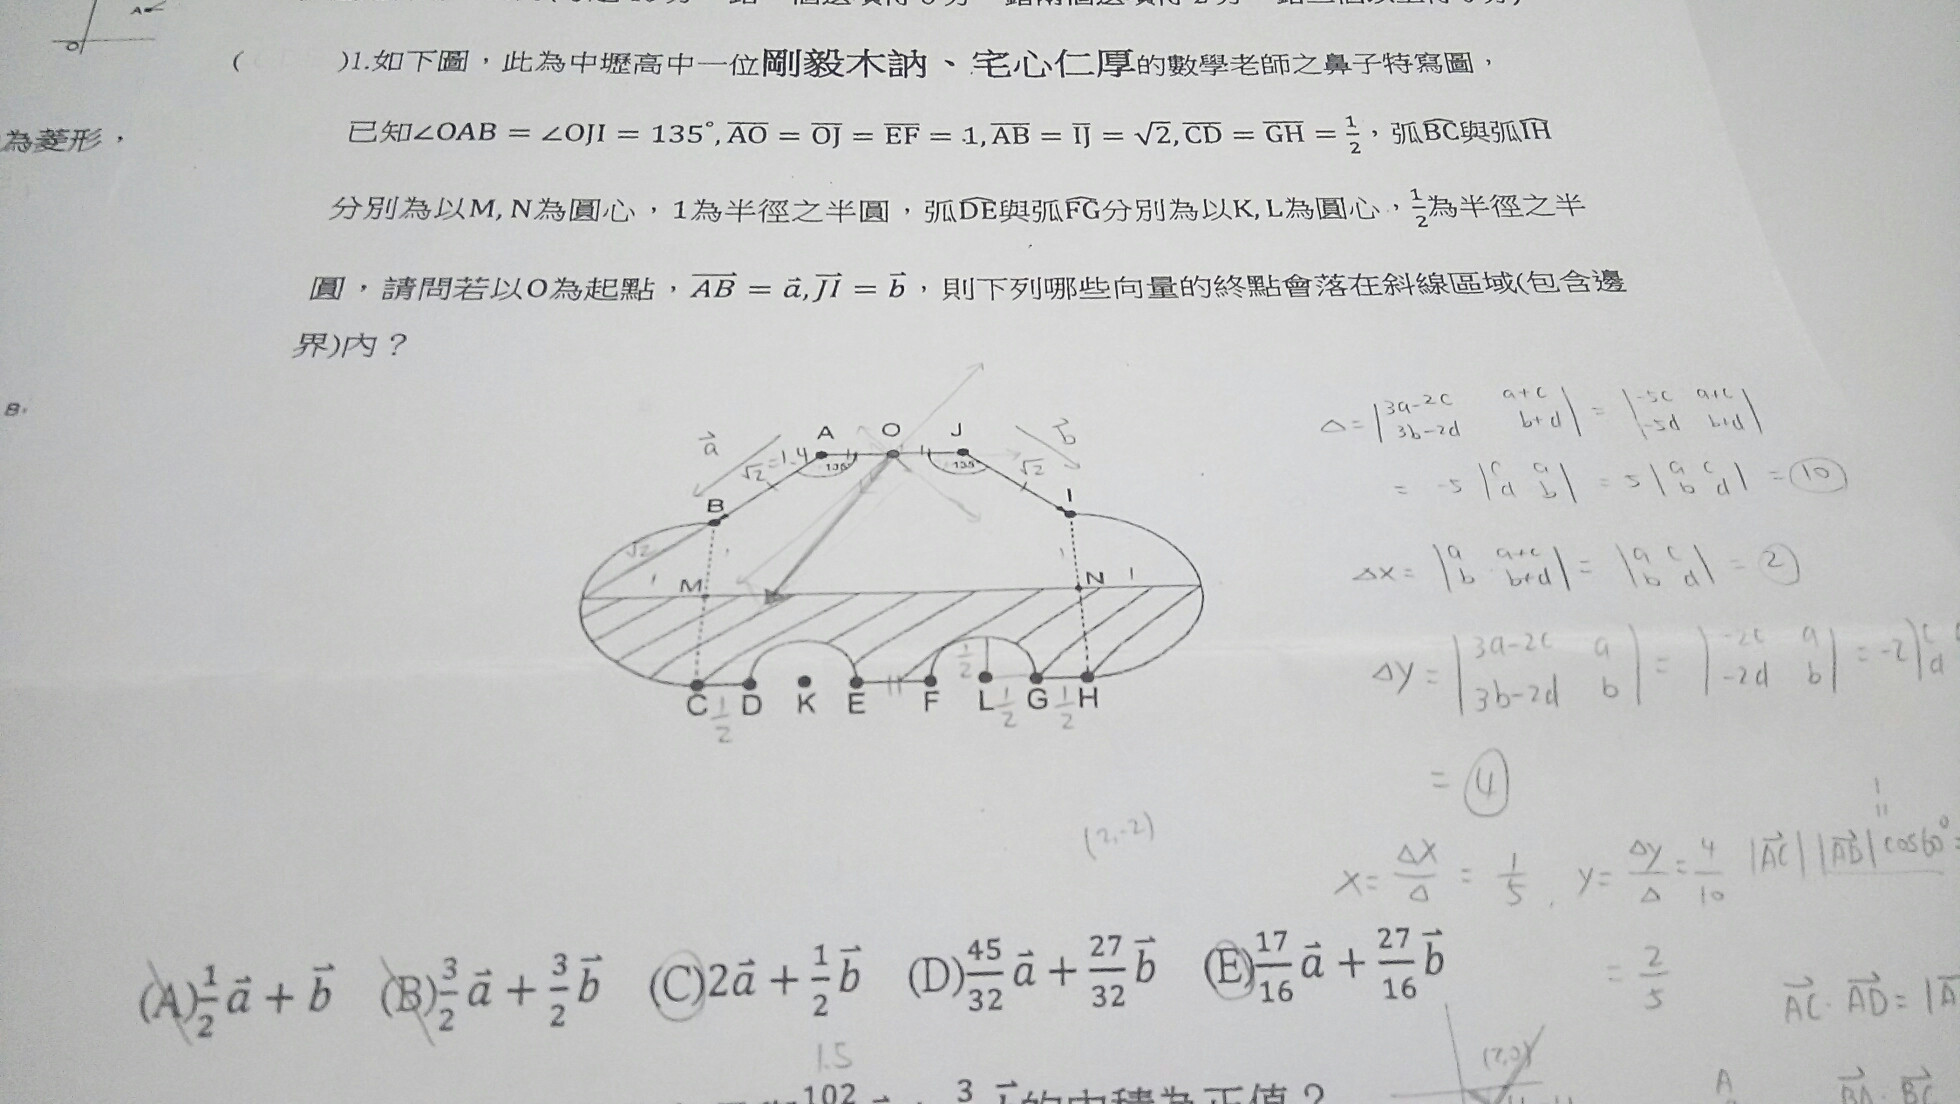 )1.如下圖，此為中壢高中一位剛毅木訥、宅心仁厚的數學老師之鼻子特寫圖，
(
為菱形，
已知∠OAB = ∠OJI = 135°, AO = OJ = EF = 1, AB = IJ = √2, CD = GH = 1/2，弧BC與弧IH
分別為以M, N為圓心，1為半徑之半圓，弧DE與弧FG分別為以K, L為圓心，1/2為半徑之半
圓，請問若以O為起點，AB = a, JI = b，則下列哪些向量的終點會落在斜線區域(包含邊
界)內？
A O J
a √2 =1.4 135 135 √2 b
B I
√2 1 1
1 M N 1
1/2
C D K E F L G H
1/2 1/2 1/2
Δ = |3a-2c a+c 3b-2d b+d| = |-5c a+c -5d b+d|
= -5 |c a d b| = 5 |a c b d| = 10
Δx = |a a+c b b+d| = |a c b d| = 2
Δy = |3a-2c a 3b-2d b| = |-2c a -2d b| = -2
= 4
(2,-2)
x = Δx/Δ = 1/5, y = Δy/Δ = 4/10
= 2/5
|AC| |AB| cos60°
AC · AD =
(A)1/2 a + b (B)3/2 a + 3/2 b (C)2a + 1/2 b (D)45/32 a + 27/32 b (E)17/16 a + 27/16 b
1.5
102 3
的內積為正值？
BA · BC